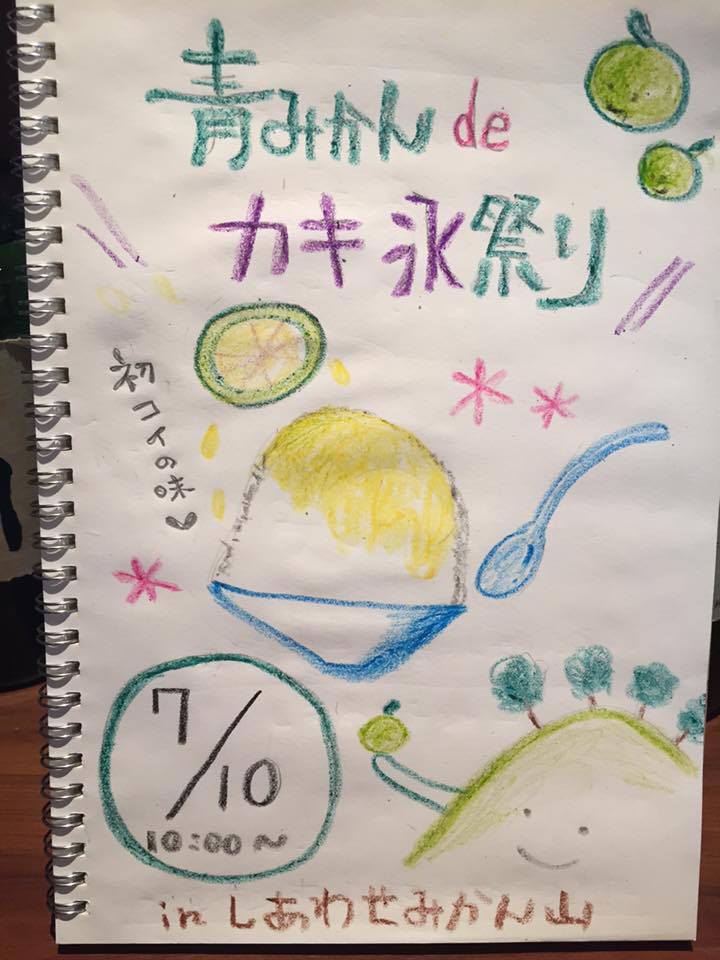 青みかん de
カキ氷祭り
初コイの味♥
7/10
10:00〜
in しあわせみかん山